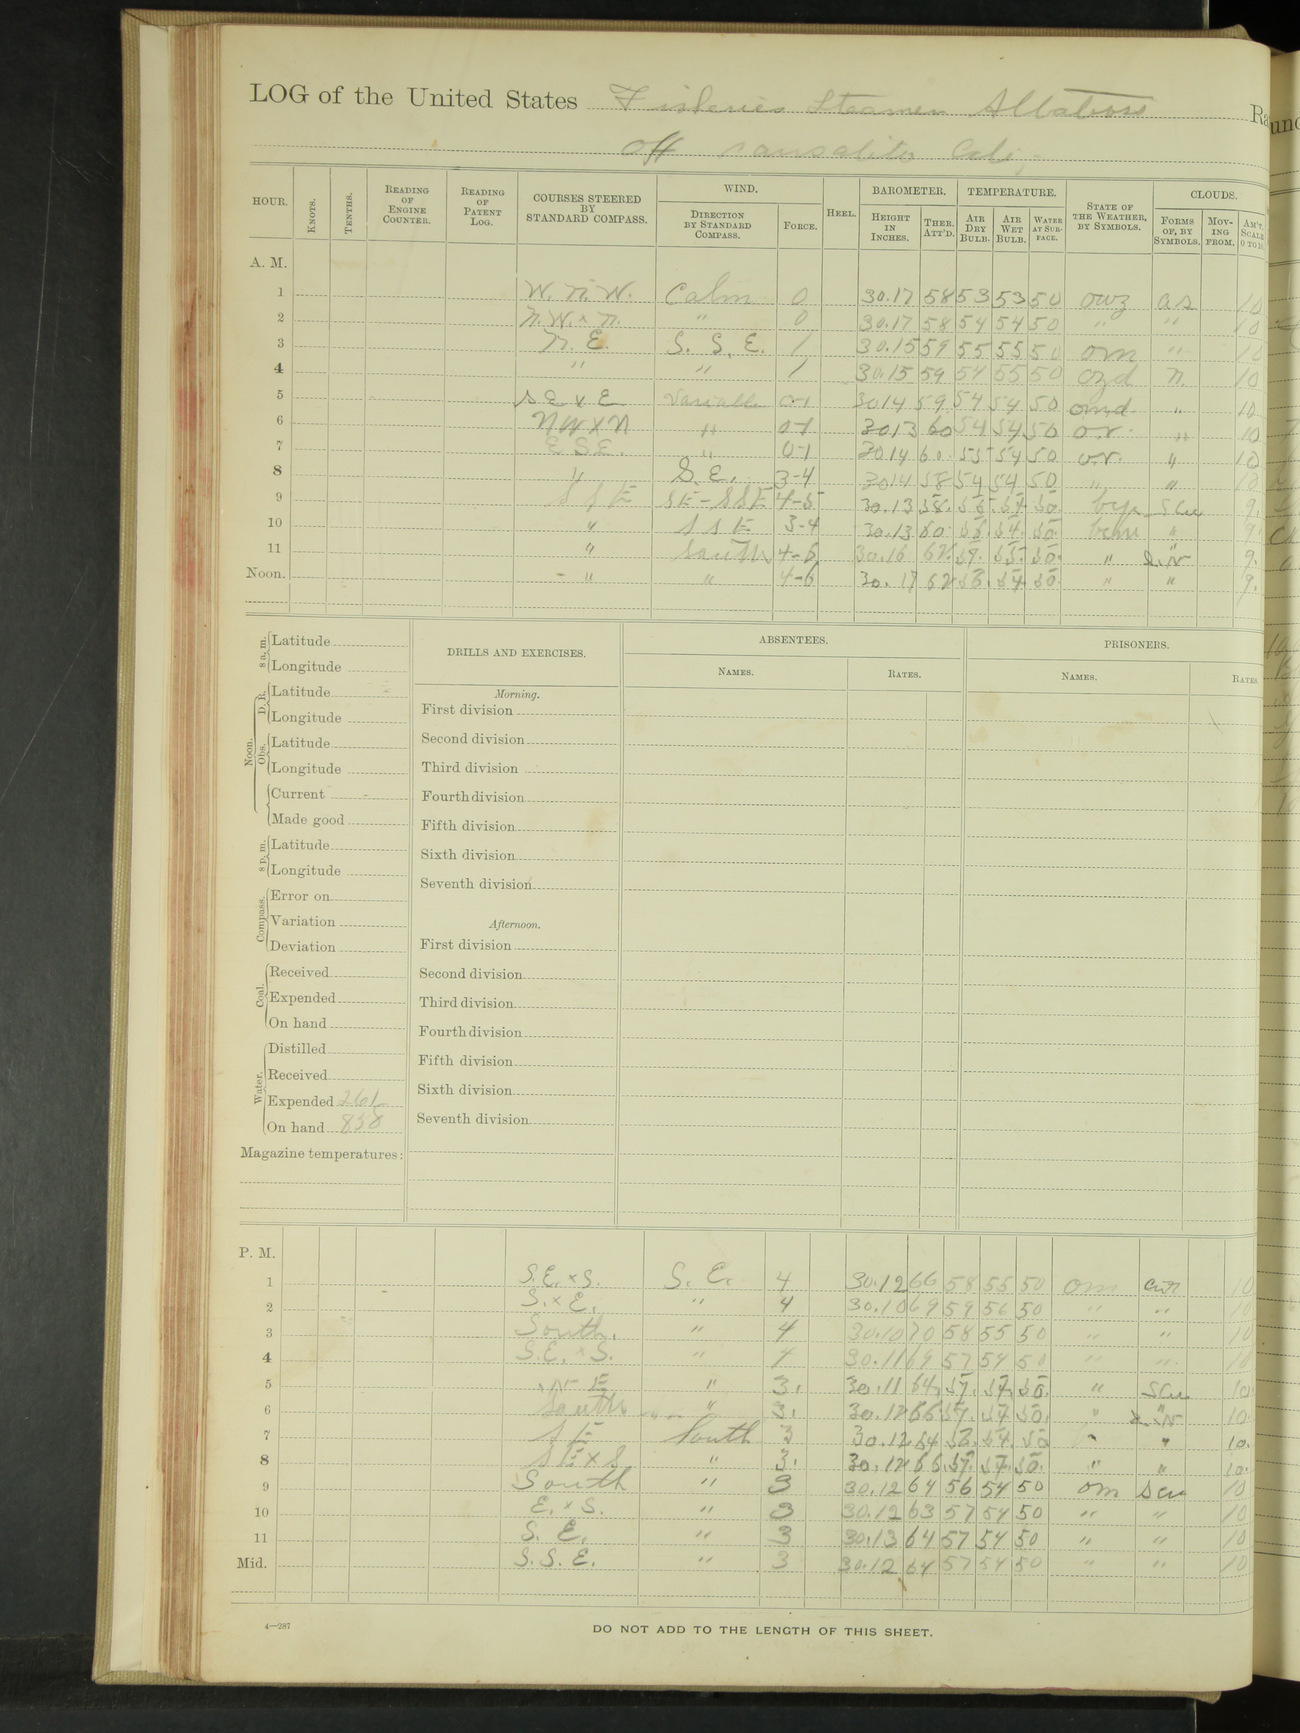 LOG of the United States Fisheries Steamer Albatross Ra
off Sausalito Cal.
HOUR. KNOTS. TENTHS. READING OF ENGINE COUNTER. READING OF PATENT LOG. COURSES STEERED BY STANDARD COMPASS. WIND. DIRECTION BY STANDARD COMPASS. FORCE. HEEL. BAROMETER. HEIGHT IN INCHES. THER. ATT'D. TEMPERATURE. AIR DRY BULB. AIR WET BULB. WATER AT SURFACE. STATE OF THE WEATHER, BY SYMBOLS. CLOUDS. FORMS OF, BY SYMBOLS. MOVING FROM. AM'T. SCALE 0 TO 10.
A. M.
1 W. N. W. Calm 0 30.17 58 53 53 50 owz as 10
2 N.W. x N. " 0 30.17 58 54 54 50 " " 10
3 N. E. S. S. E. 1 30.15 59 55 55 50 om " 10
4 " " 1 30.15 59 54 55 50 ozd n 10
5 SE x E Variable 0-1 30 14 59 54 54 50 omd " 10
6 NW x N " 0-1 30 13 60 54 54 50 o.r. " 10
7 E S E. " 0-1 30 14 60 55 54 50 o.r. " 10
8 " S. E. 3-4 30 14 58 54 54 50 " " 10
9 S S E SE - SSE 4-5 30.13 58. 56. 54 50 Scu 9.
10 " S S E 3-4 30.13 60. 56. 54. 50. " 9.
11 " South 4-5 30.16 62. 57. 55. 50. " 9.
Noon. " " 4-6 30.17 62 56. 54. 50. " " 9.
8 a. m. Latitude
Longitude
Noon. D. R. Latitude
Longitude
Obs. Latitude
Longitude
Current
Made good
8 p. m. Latitude
Longitude
Compass. Error on
Variation
Deviation
Coal. Received
Expended
On hand
Water. Distilled
Received
Expended 261
On hand 858
Magazine temperatures:
DRILLS AND EXERCISES.
Morning.
First division
Second division
Third division
Fourth division
Fifth division
Sixth division
Seventh division
Afternoon.
First division
Second division
Third division
Fourth division
Fifth division
Sixth division
Seventh division
ABSENTEES.
NAMES. RATES.
PRISONERS.
NAMES. RATES.
P. M.
1 S.E. x S. S. E. 4 30.12 66 58 55 50 om 10
2 S. x E. " 4 30.10 69 59 56 50 " " 10
3 South. " 4 30.10 70 58 55 50 " " 10
4 S.E. x S. " 4 30.11 69 57 54 50 " " 10
5 " 3. 30.11 64. 57. 54. 50. " Scu 10.
6 South " 3. 30.12 66 57. 54. 50. " 10.
7 S E South 3 30.12 64 56. 54. 50 " " 10.
8 S E x S " 3. 30.12 66. 57. 54. 50. " " 10.
9 South " 3 30.12 64 56 54 50 om Scu 10
10 E. x S. " 3 30.12 63 57 54 50 " " 10
11 S. E. " 3 30.13 64 57 54 50 " " 10
Mid. S. S. E. " 3 30.12 64 57 54 50 " " 10
4—287
DO NOT ADD TO THE LENGTH OF THIS SHEET.